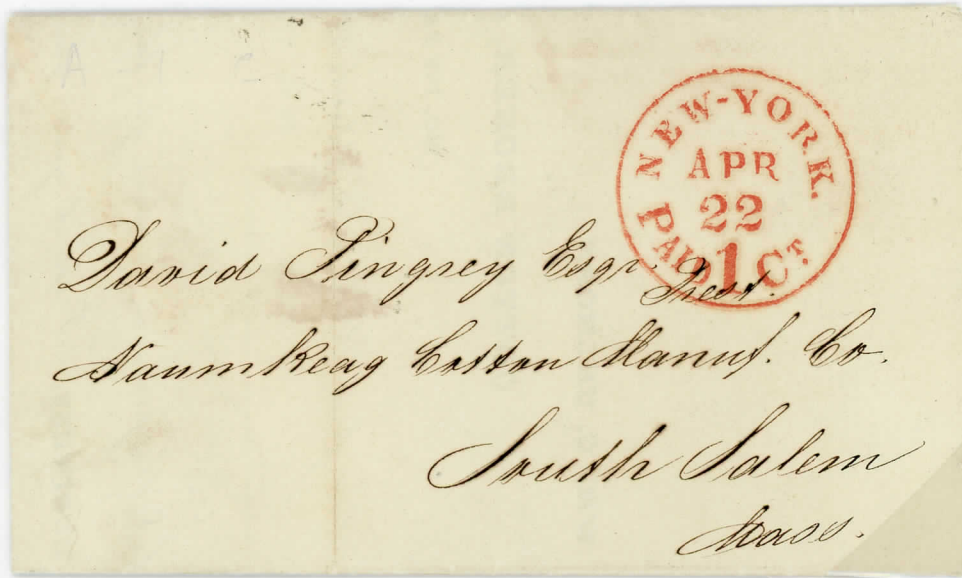 NEW-YORK.
APR
22
PAID 1 CT
David Pingrey Esqr. Prest.
Naumkeag Cotton Manuf. Co.
South Salem
Mass.